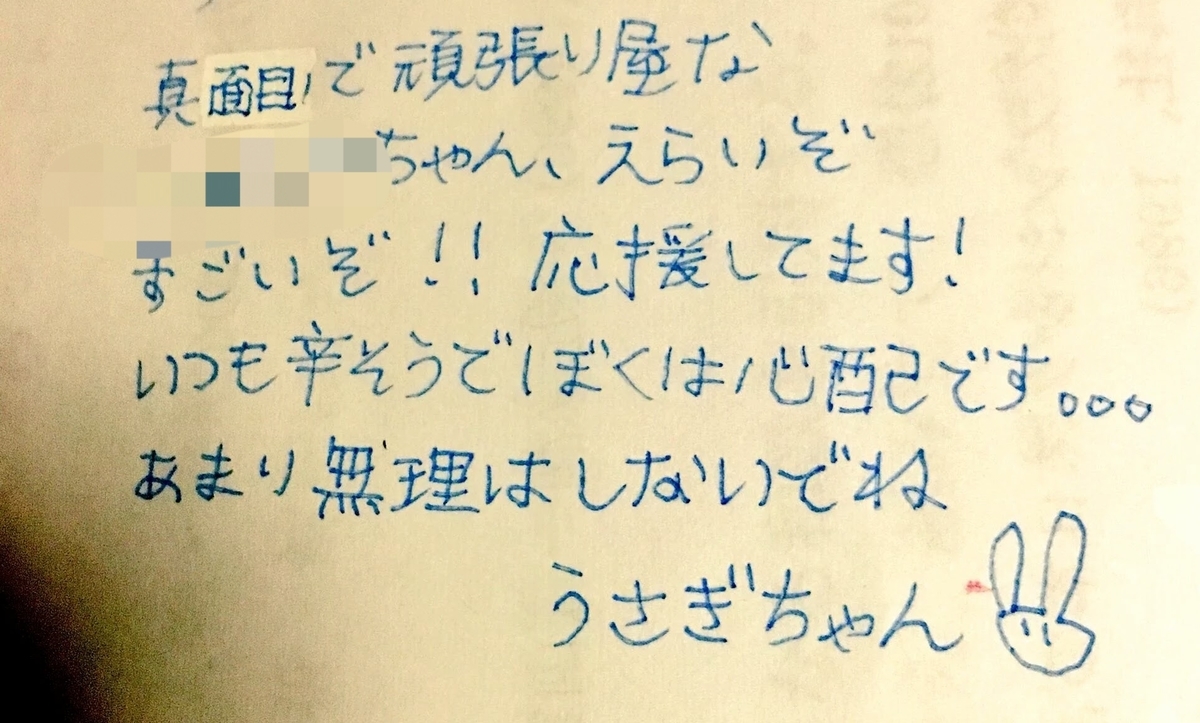 真面目で頑張り屋な
ちゃん、えらいぞ
すごいぞ!! 応援してます!
いつも辛そうでぼくは心配です。。。
あまり無理はしないでね
うさぎちゃん